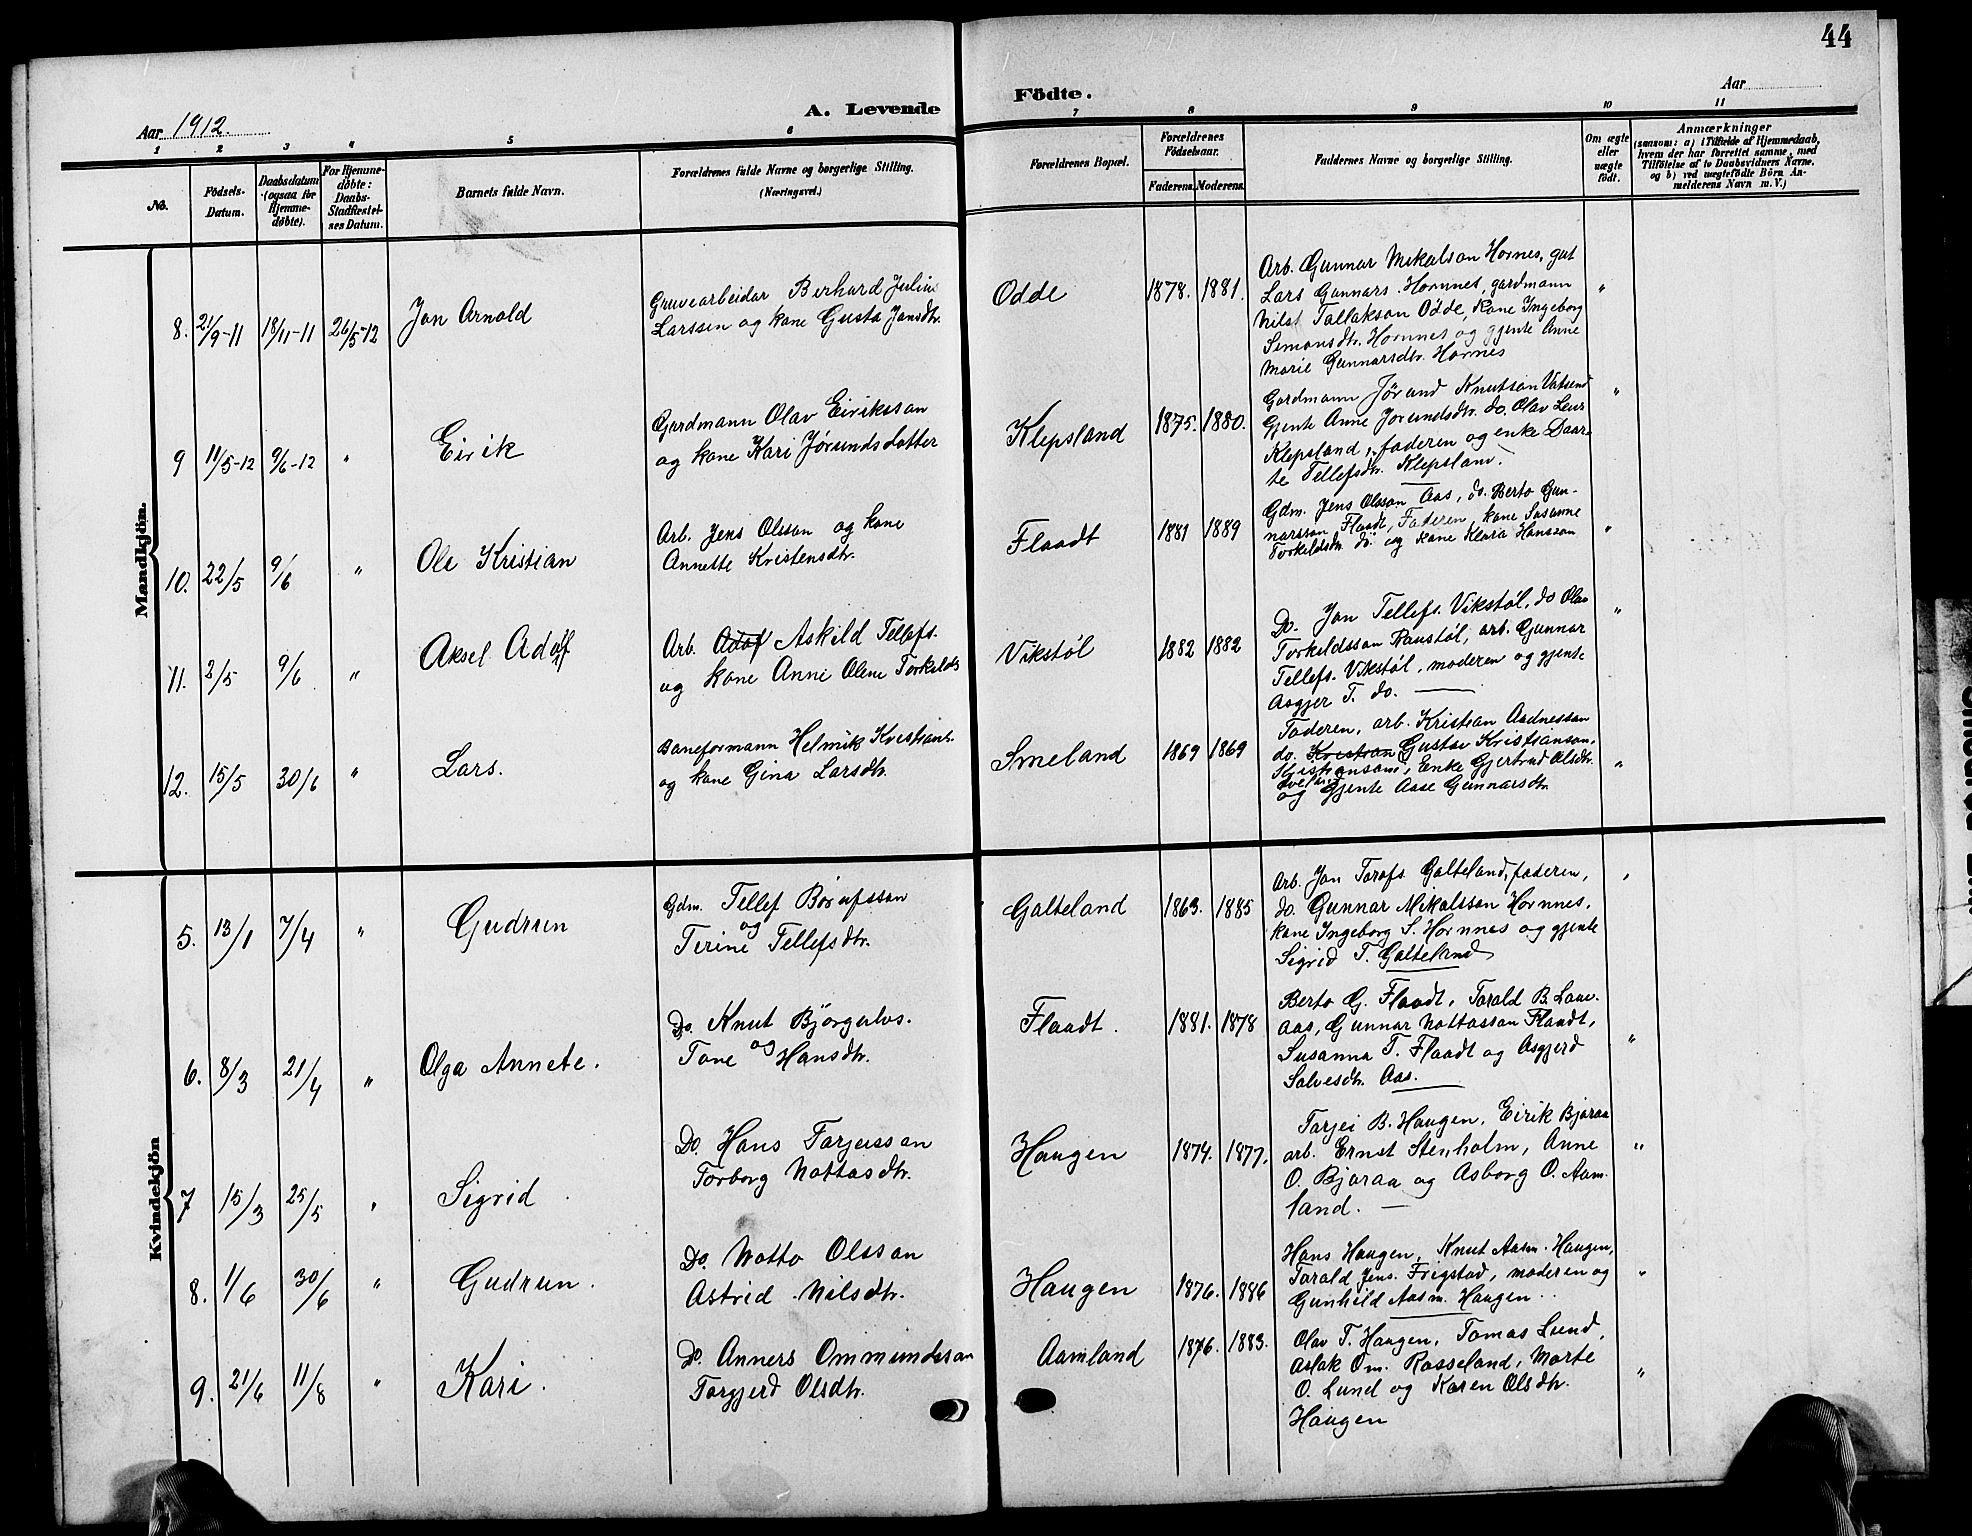 44
A. Levende Födte.
Aar 1912.
Aar
1 2 3 4 5 6 7 8 9 10 11
No.
Födsels-
Datum.
Daabsdatum
(ogsaa for
Hjemme-
døbte).
For Hjemme-
døbte:
Daabs-
Stadfæstel-
ses Datum.
Barnets fulde Navn.
Forældrenes fulde Navne og borgerlige Stilling.
(Næringsvei.)
Forældrenes Bopæl.
Forældrenes
Födselsaar.
Faderens. Moderens.
Faddernes Navne og borgerlige Stilling.
Om ægte
eller
uægte
født.
Anmærkninger
(saasom: a) i Tilfælde af Hjemmedaab,
hvem der har forrettet samme, med
Tilföielse af to Daabsvidners Navne,
og b) ved uægtefödte Börn An-
melderens Navn m. V.)
Mandkjön.
8. 21/9-11 18/11-11 26/5-12 Jon Arnold
Gruvearbeidar Berhard Julius
Larssen og kone Gusta Jonsdtr.
Odde 1878. 1881.
Arb. Gunnar Mikalson Hornes, gut
Lars Gunnars. Hornnes, gardmann
Nils Tallakson Odde, Kone Ingeborg
Simonsdtr. Hornnes og gjente Anne
Marie Gunnarsdtr. Hornes
"
9 11/5-12 9/6-12 " Eirik
Gardmann Olav Eiriksson
og kone Kari Jørundsdotter
Klepsland 1875. 1880.
Gardmann Jørund Knutson Vatsend
Gjente Anne Jorundsdtr. do. Olav Leur
Klepsland, faderen og enke Daar-
te Tellefsdtr. Klepsland.
"
10. 22/5 9/6 " Ole Kristian
Arb. Jens Olsson og kone
Annette Kristensdtr.
Flaadt 1881 1889
Gdm. Jens Olsson Aas, do. Berto Gun-
narsson Flaadt, Faderen, kone Susanne
Torkildsdtr. do. og kone Klara Hansson
"
11. 2/5 9/6 " Aksel Adolf
Arb. Adolf Askild Tellefs.
og kone Anne Olene Torkilds
Vikstøl 1882 1882
Do. Jon Tellefs. Vikstøl, do Olav
Torkeldsson Raustøl, arb. Gunnar
Tellefs. Vikstøl, moderen og gjente
Asgjer T. do.
"
12. 15/5 30/6 " Lars.
Baneformann Helmik Kristians.
og kone Gina Larsdtr.
Smeland 1869 1869
Faderen, arb. Kristian Aadnesson
do. Kristian Gustav Kristianson,
Kristiansand, Enke Gjertrud Olsdtr.
og gjente Aase Gunnarsdtr.
"
Kvindekjön
5. 13/1 7/4 " Gudrun
Gdm. Tellef Børufsson
og
Tirine Tellefsdtr.
Galteland 1863. 1885
Arb. Jon Torofs Galteland, faderen,
do. Gunnar Mikalsson Hornnes,
kone Ingeborg S. Hornnes og gjente
Sigrid T. Galteland
"
6. 8/3 21/4 " Olga Annete.
Do. Knut Bjørgulvs.
og
Tone Hansdtr.
Flaadt. 1881. 1878
Berto G. Flaadt, Torald B. Lauv-
aas, Gunnar Nottosson Flaadt,
Susanna T. Flaadt og Asgjerd
Salvesdtr. Aas.
"
7 15/3 25/5 " Sigrid
Do. Hans Tarjeisson
Torborg Nottosdtr.
Haugen 1874. 1877.
Tarjei B. Haugen, Eirik Bjoraa
arb. Ernst Stenholm, Anne
O. Bjoraa og Asborg O. Aam-
land.
"
8. 1/6 30/6 " Gudrun.
Do. Notto Olsson
Astrid Nilsdtr.
Haugen 1876. 1886
Hans Haugen, Knut Aasm. Haugen,
Torald Jens. Frigstad, moderen og
Gunhild Aasm. Haugen.
"
9. 21/6 11/8 " Kari.
Do. Anners Ommundsson
Torgjerd Olsdtr.
Aamland 1876. 1883.
Olav T. Haugen, Tomas Lund,
Aslak Om. Rosseland, Marte
O. Lund og Karen Olsdtr.
Haugen
"